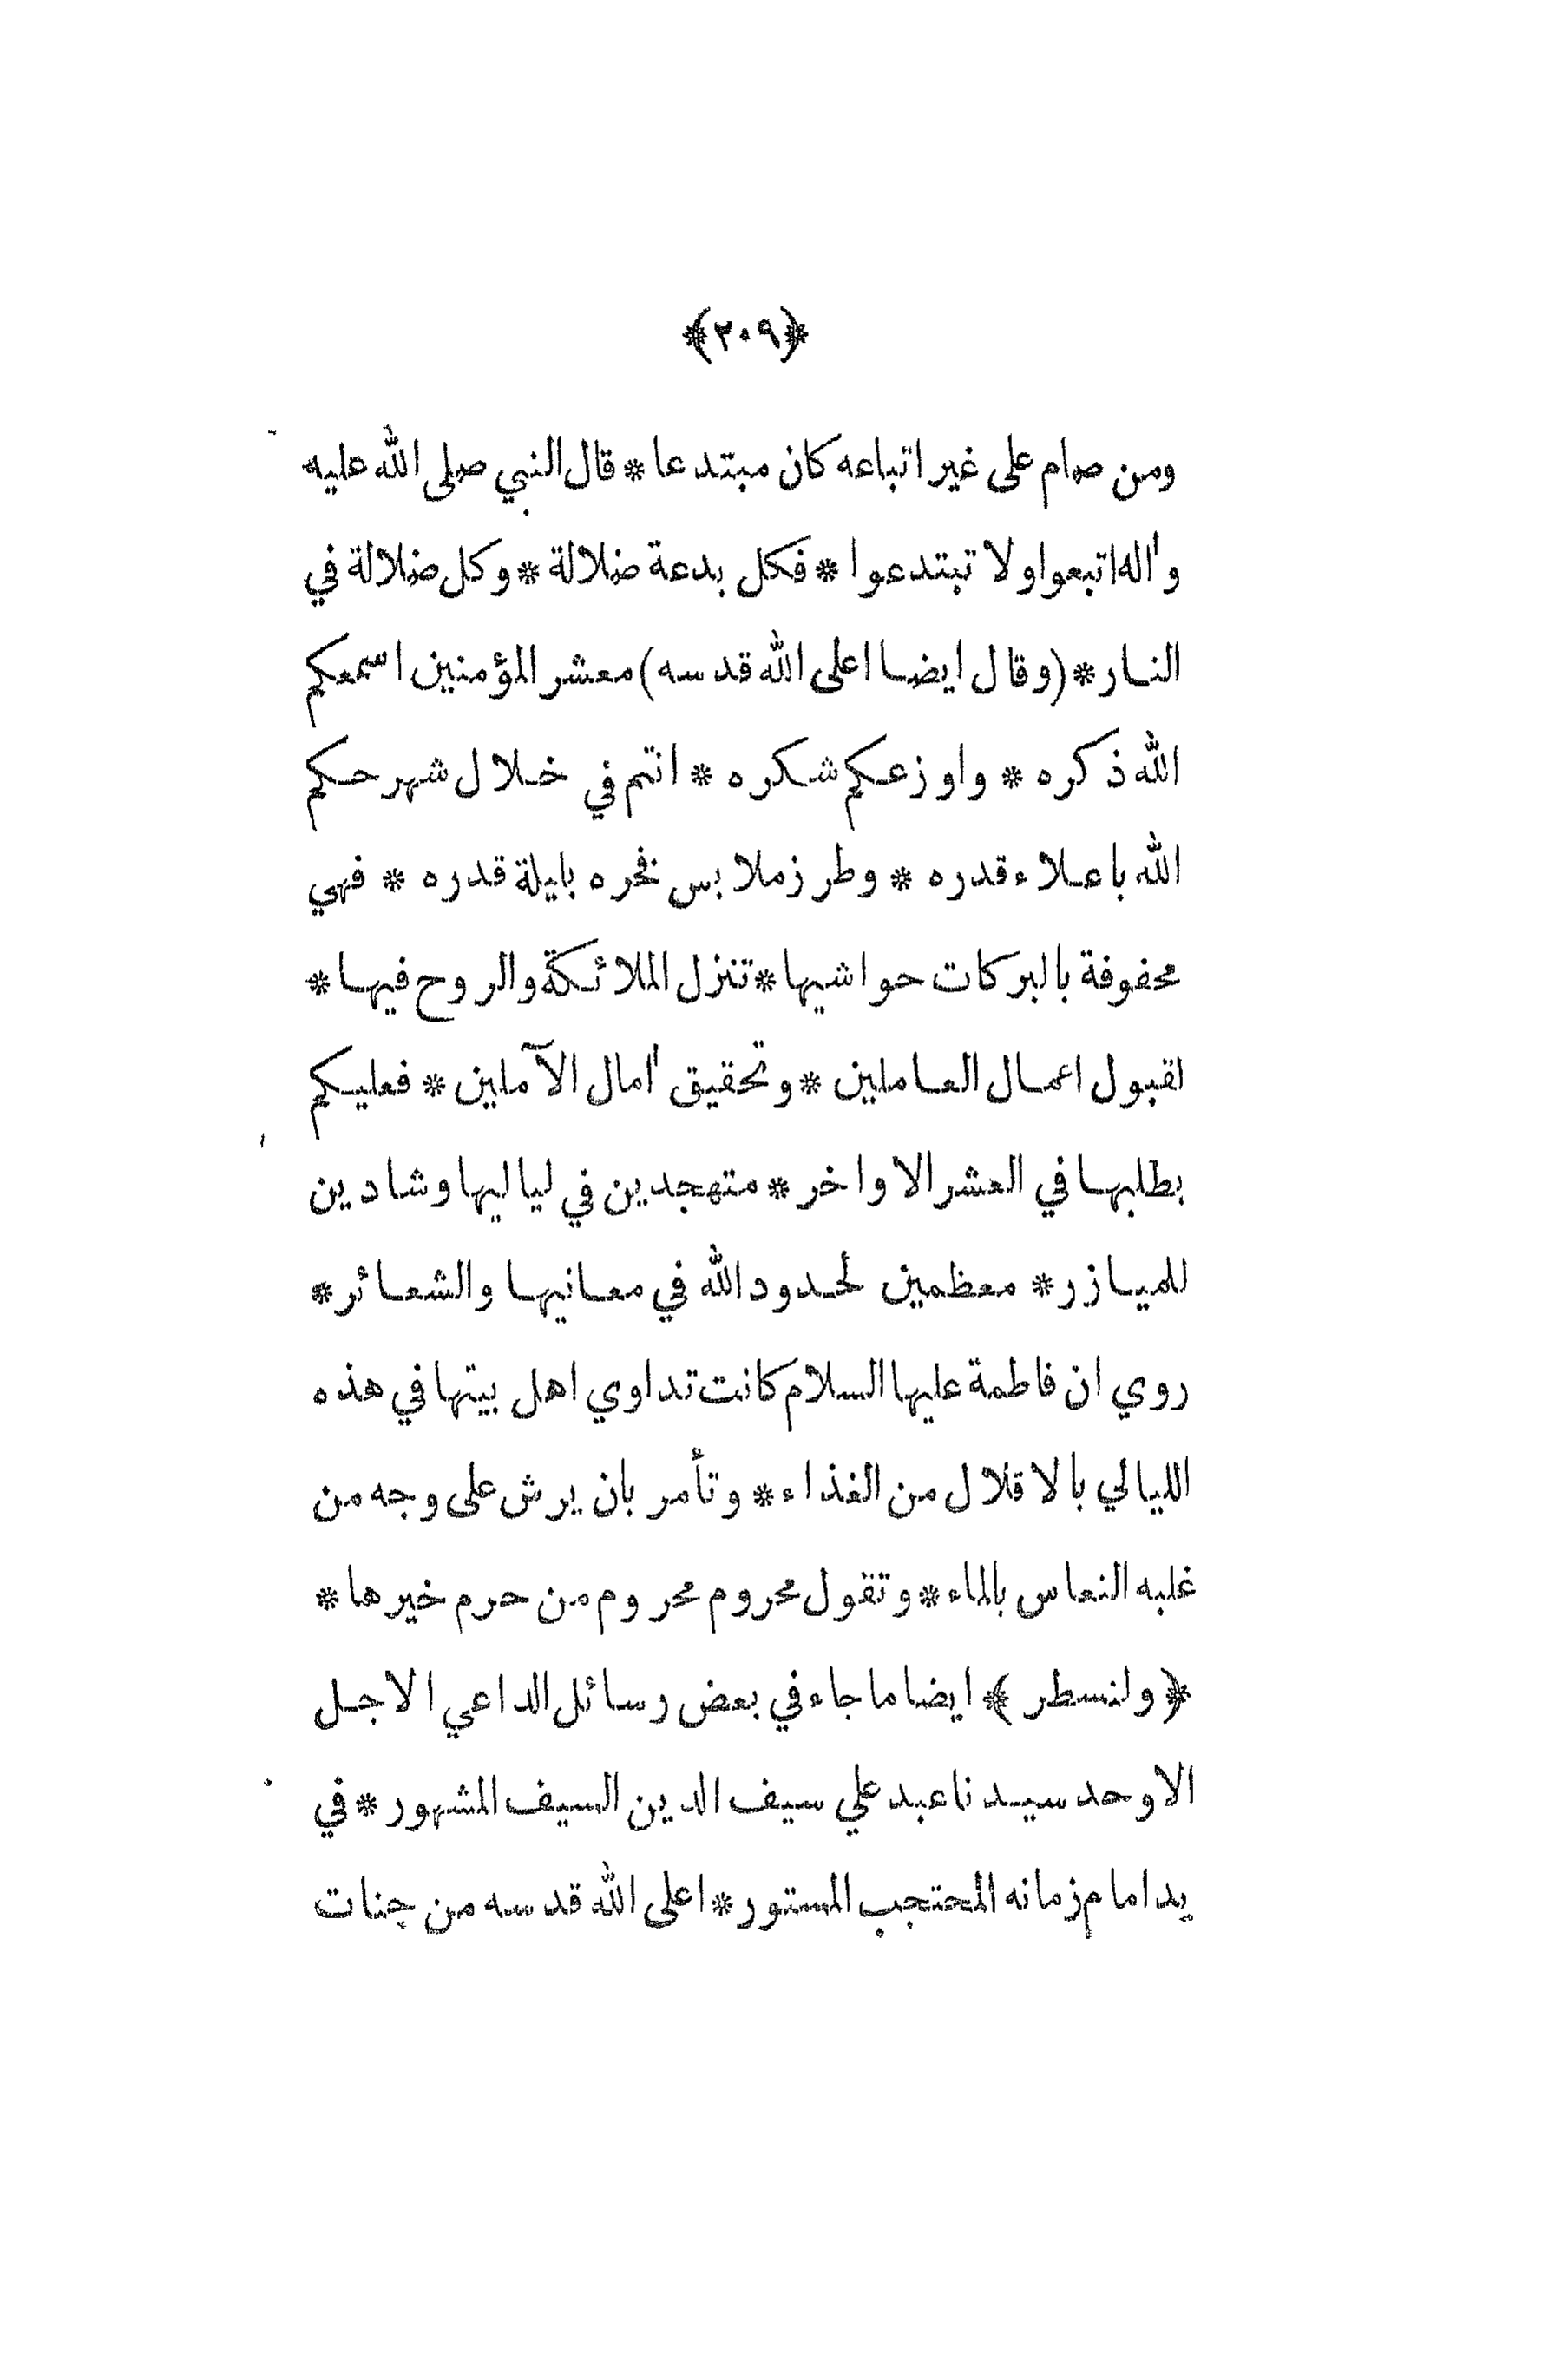 ﴿٢٠٩﴾
ومن صام على غير اتباعه كان مبتدعا * قال النبي صلى الله عليه
واٰله اتبعوا ولا تبتدعوا * فكل بدعة ضلالة * وكل ضلالة في
النار * (وقال ايضا اعلى الله قدسه) معشر المؤمنين اسمعكم
الله ذكره * واوزعكم شكره * انتم في خلال شهر حكم
الله باعلاء قدره * وطرز ملابس فخره بليلة قدره * فهي
محفوفة بالبركات حواشيها * تنزل الملائكة والروح فيها *
لقبول اعمال العاملين * وتحقيق اٰمال الآملين * فعليكم
بطلبها في العشر الاواخر * متهجدين في لياليها وشادين
للميازر * معظمين لحدود الله في معانيها والشعائر *
روي ان فاطمة عليها السلام كانت تداوي اهل بيتها في هذه
الليالي بالاقلال من الغذاء * وتأمر بان يرش على وجه من
غلبه النعاس بالماء * وتقول محروم محروم من حرم خيرها *
﴿ ولنسطر ﴾ ايضا ما جاء في بعض رسائل الداعي الاجل
الاوحد سيدنا عبد علي سيف الدين السيف المشهور * في
يد امام زمانه المحتجب المستور * اعلى الله قدسه من جنات